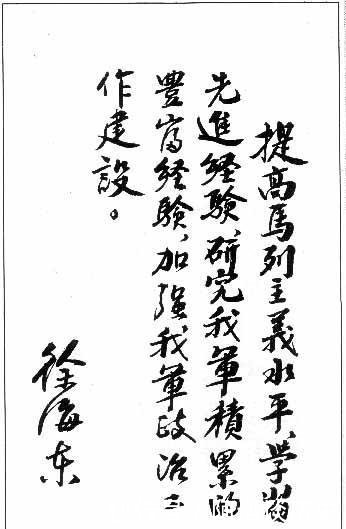 提高馬列主義水平、学習
先進経験、研究我軍積累的
豊富経験，加强我軍政治工
作建設。
徐海东